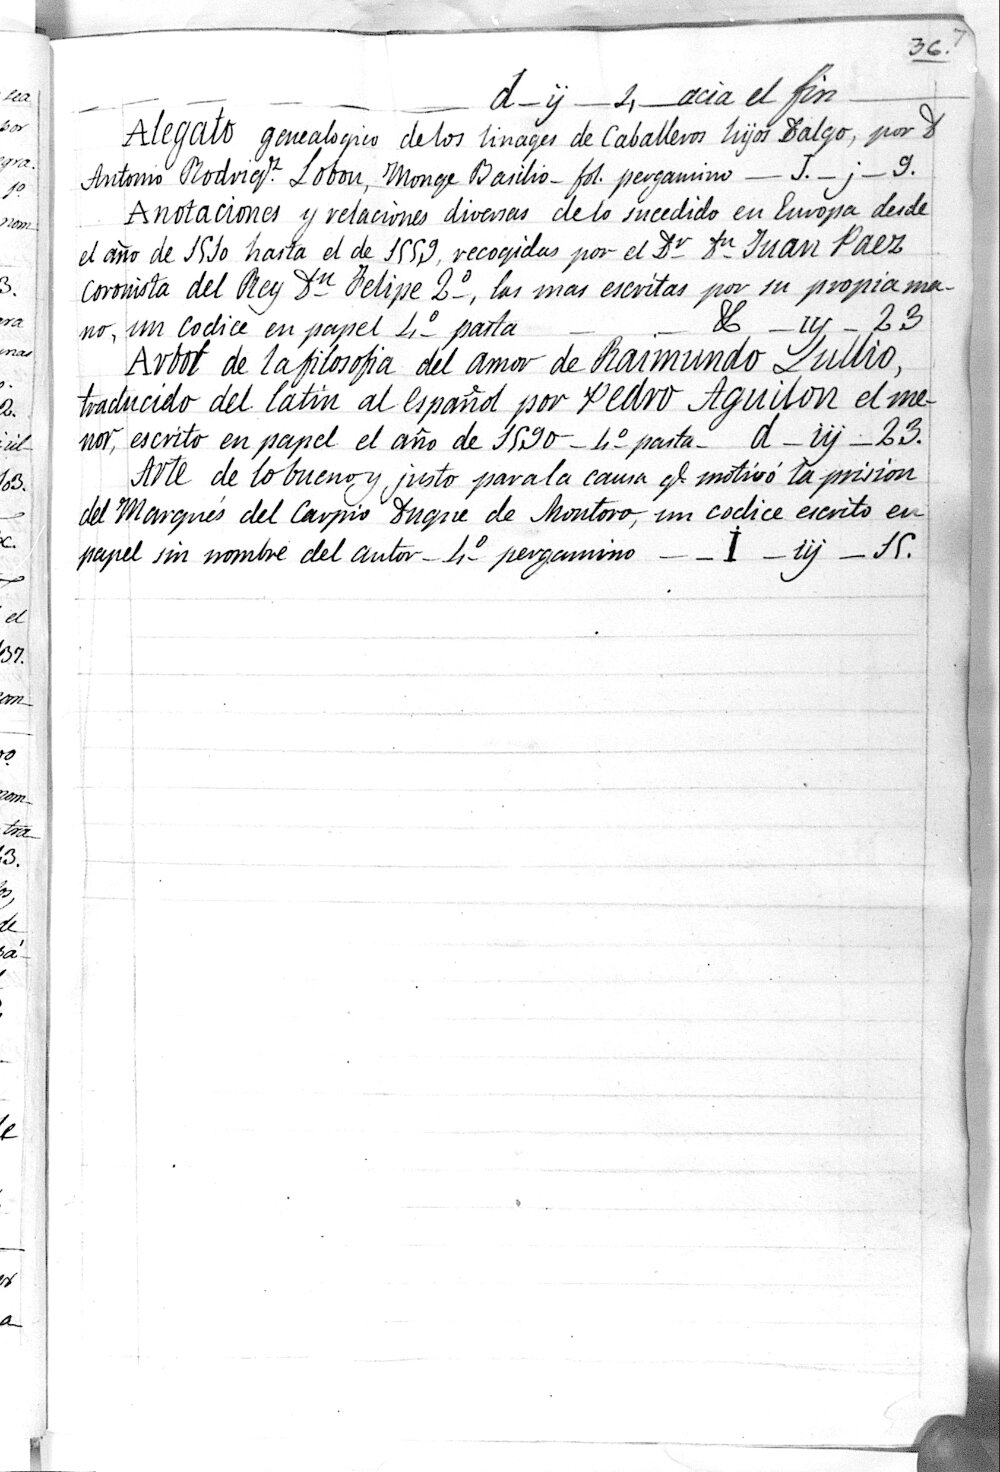 36. 7
d - ij - 2, - acia el fin
Alegato genealogico de los linages de Caballeros hijos Dalgo, por D
Antonio Rodrigz. Lobon, Monge Basilio - fol. pergamino - J. - j - 9.
Anotaciones y relaciones diversas de lo sucedido en Europa desde
el año de 1510 hasta el de 1559, recogidas por el Dr. Dn. Juan Paez
Coronista del Rey Dn. Felipe 2º, las mas escritas por su propia ma-
no, un codice en papel 4º pasta - - & - iij - 23
Arbol de la filosofia del amor de Raimundo Lullio,
traducido del latin al español por Pedro Aguilon el me-
nor, escrito en papel el año de 1590 - 4º pasta - d - iij - 23.
Arte de lo bueno y justo para la causa q.e motivó la prision
del Marqués del Carpio Duque de Montoro, un codice escrito en
papel sin nombre del autor - 4º pergamino - - I - iij - 15.